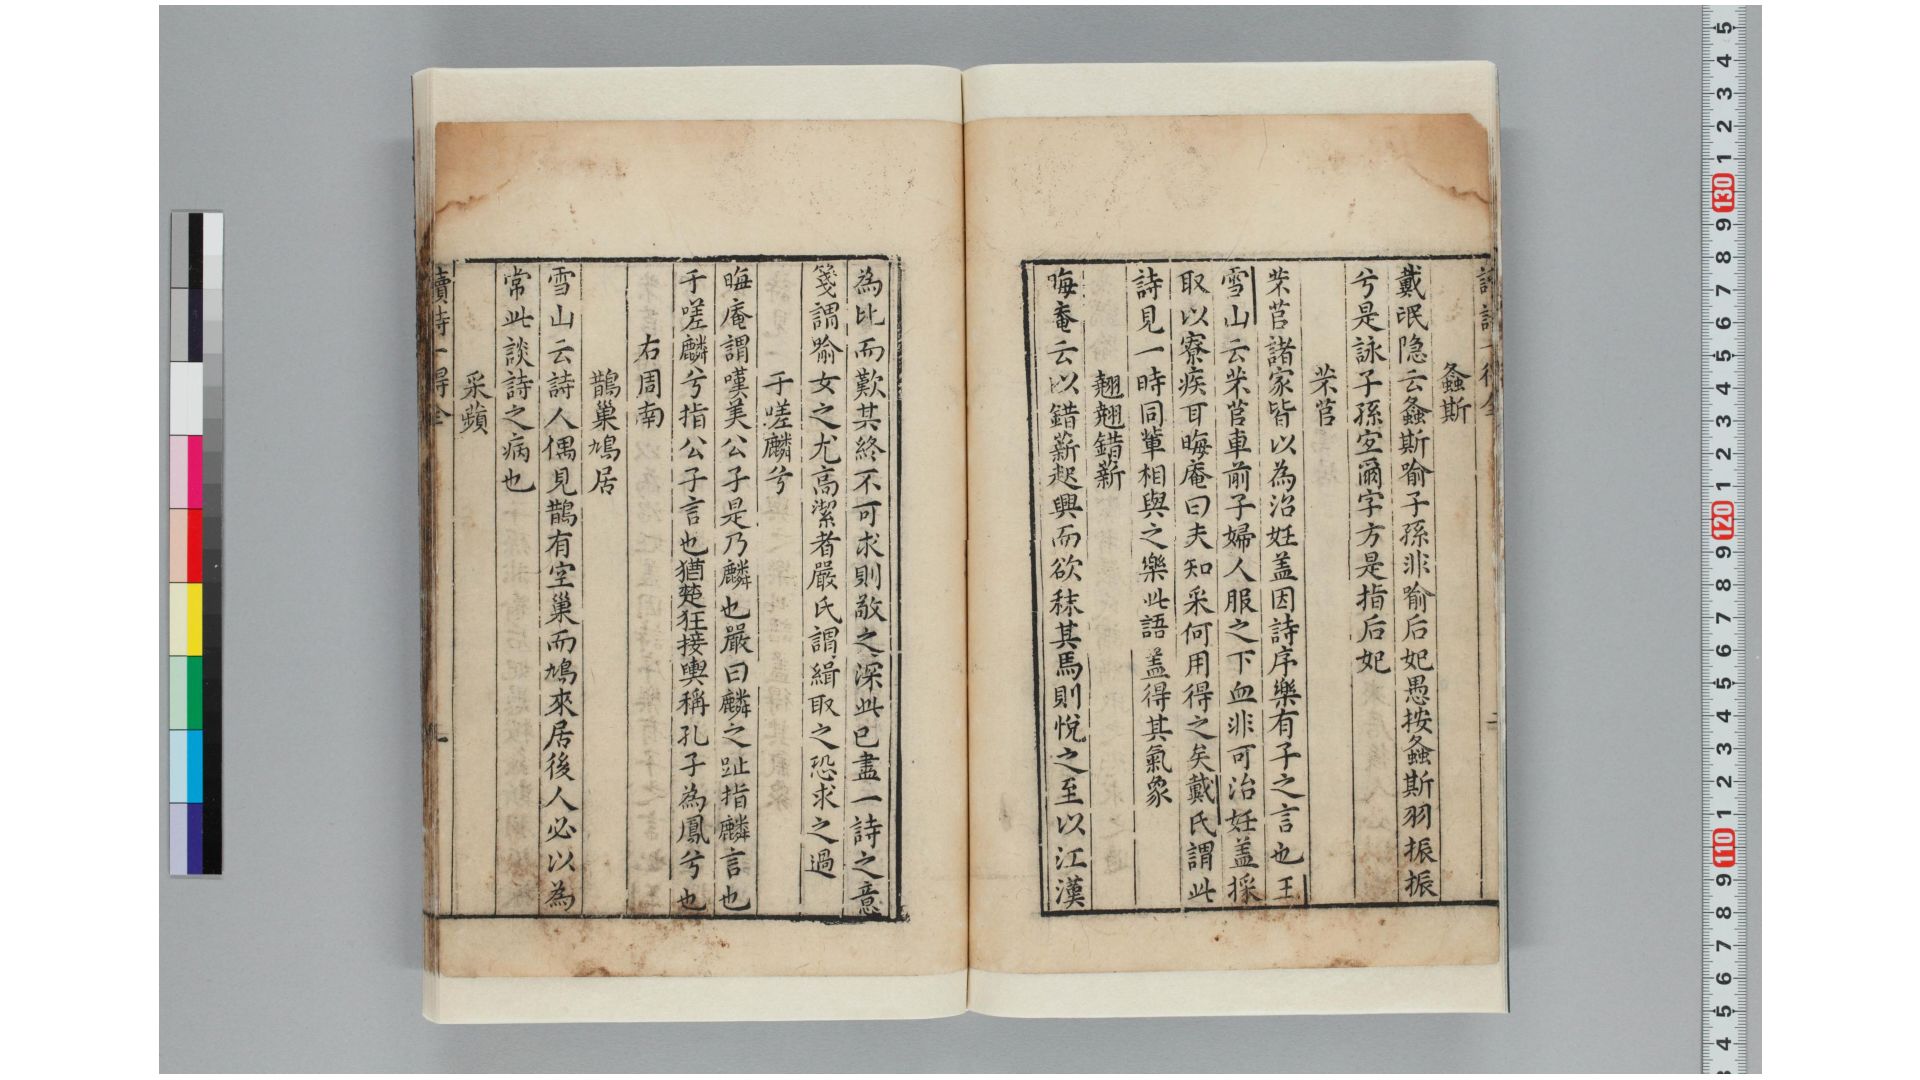 螽斯
戴岷隐云螽斯喻子孫非喻后妃愚按螽斯羽振振
兮是詠子孫宜爾字方是指后妃
芣苢
芣苢諸家皆以為治妊盖因詩序樂有子之言也王
雪山云芣苢車前子婦人服之下血非可治妊盖採
取以寮疾耳晦庵曰夫知采何用得之矣戴氏謂此
詩見一時同軰相與之樂此語盖得其氣象
翹翹錯薪
晦菴云以錯薪起興而欲秣其馬則悅之至以江漢
為比而歎其終不可求則敬之深此已盡一詩之意
箋謂喻女之尤高潔者嚴氏謂緝取之恐求之過
于嗟麟兮
晦庵謂嘆美公子是乃麟也嚴曰麟之趾指麟言也
于嗟麟兮指公子言也猶楚狂接輿稱孔子為鳳兮也
右周南
鵲巢鳩居
雪山云詩人偶見鵲有空巢而鳩來居後人必以為
常此談詩之病也
采蘋
讀詩一得全